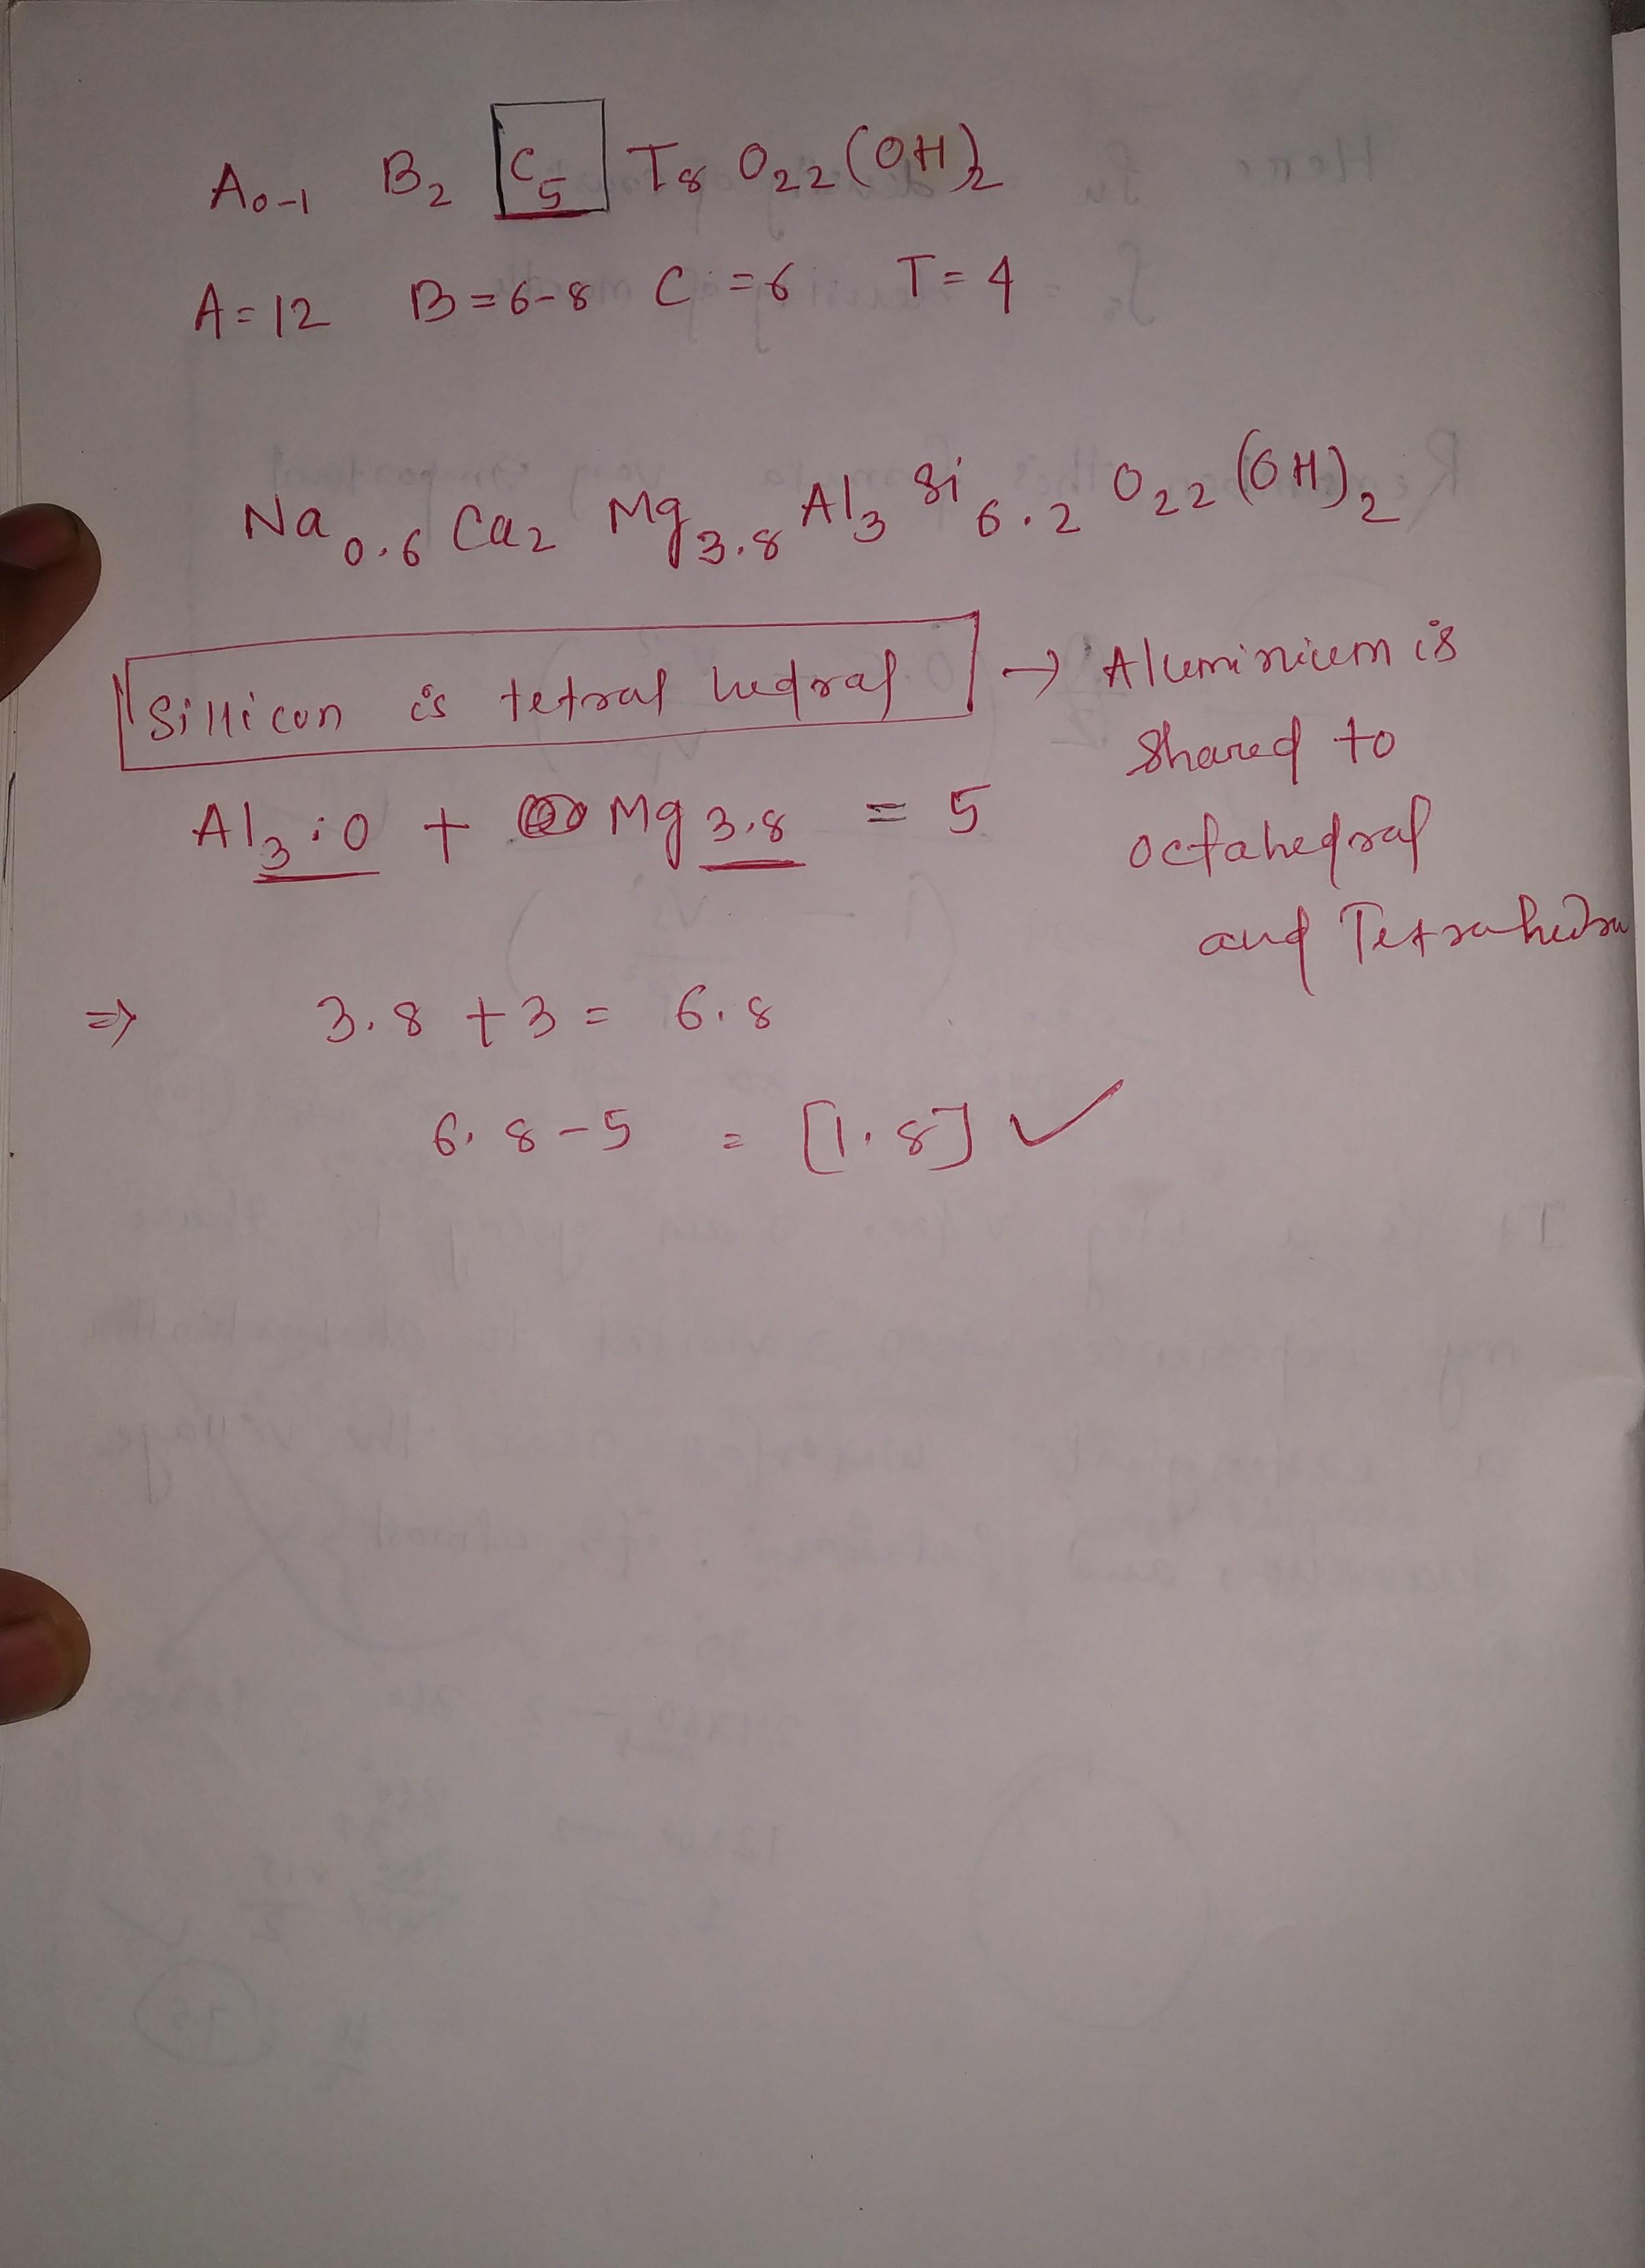 A0-1 B2 C5 T8 O22 (OH)2
A=12 B=6-8 C=6 T=4
Na0.6 Ca2 Mg3.8 Al3 Si6.2 O22 (OH)2
Sillicon is tetral hedral → Aluminium is
shared to
octahedral
and Tetrahedra
Al3.0 + Mg3.8 = 5
⇒ 3.8 + 3 = 6.8
6.8 - 5 = [1.8] ✓